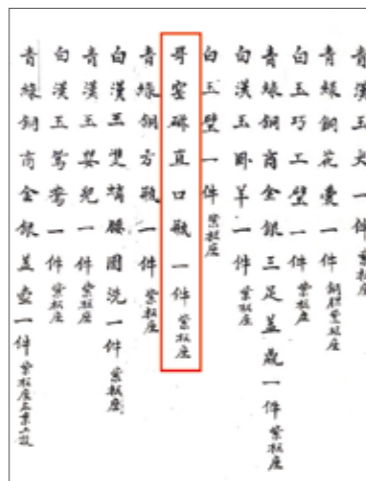 青漢玉犬一件紫檀座
青綠銅花囊一件銅胆紫檀座
白玉巧工璧一件紫檀座
青綠銅商金銀三足蓋鼎一件紫檀座
白漢玉卧羊一件紫檀座
白玉璧一件紫檀座
哥窑磁直口瓶一件紫檀座
青綠銅方瓶一件紫檀座
白漢玉雙螭腰圓洗一件紫檀座
青漢玉嬰兒一件紫檀座
白漢玉鴛鴦一件紫檀座
青綠銅商金銀蓋壺一件紫檀座